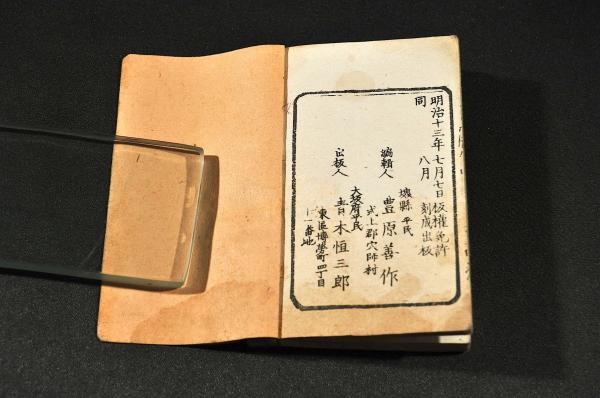 明治十三年七月七日板權免許
同八月刻成出板
編輯人
堺縣平民
豊原善作
式上郡穴師村
出板人
大坂府平民
青木恒三郎
東區博勞町四丁目
十一番地